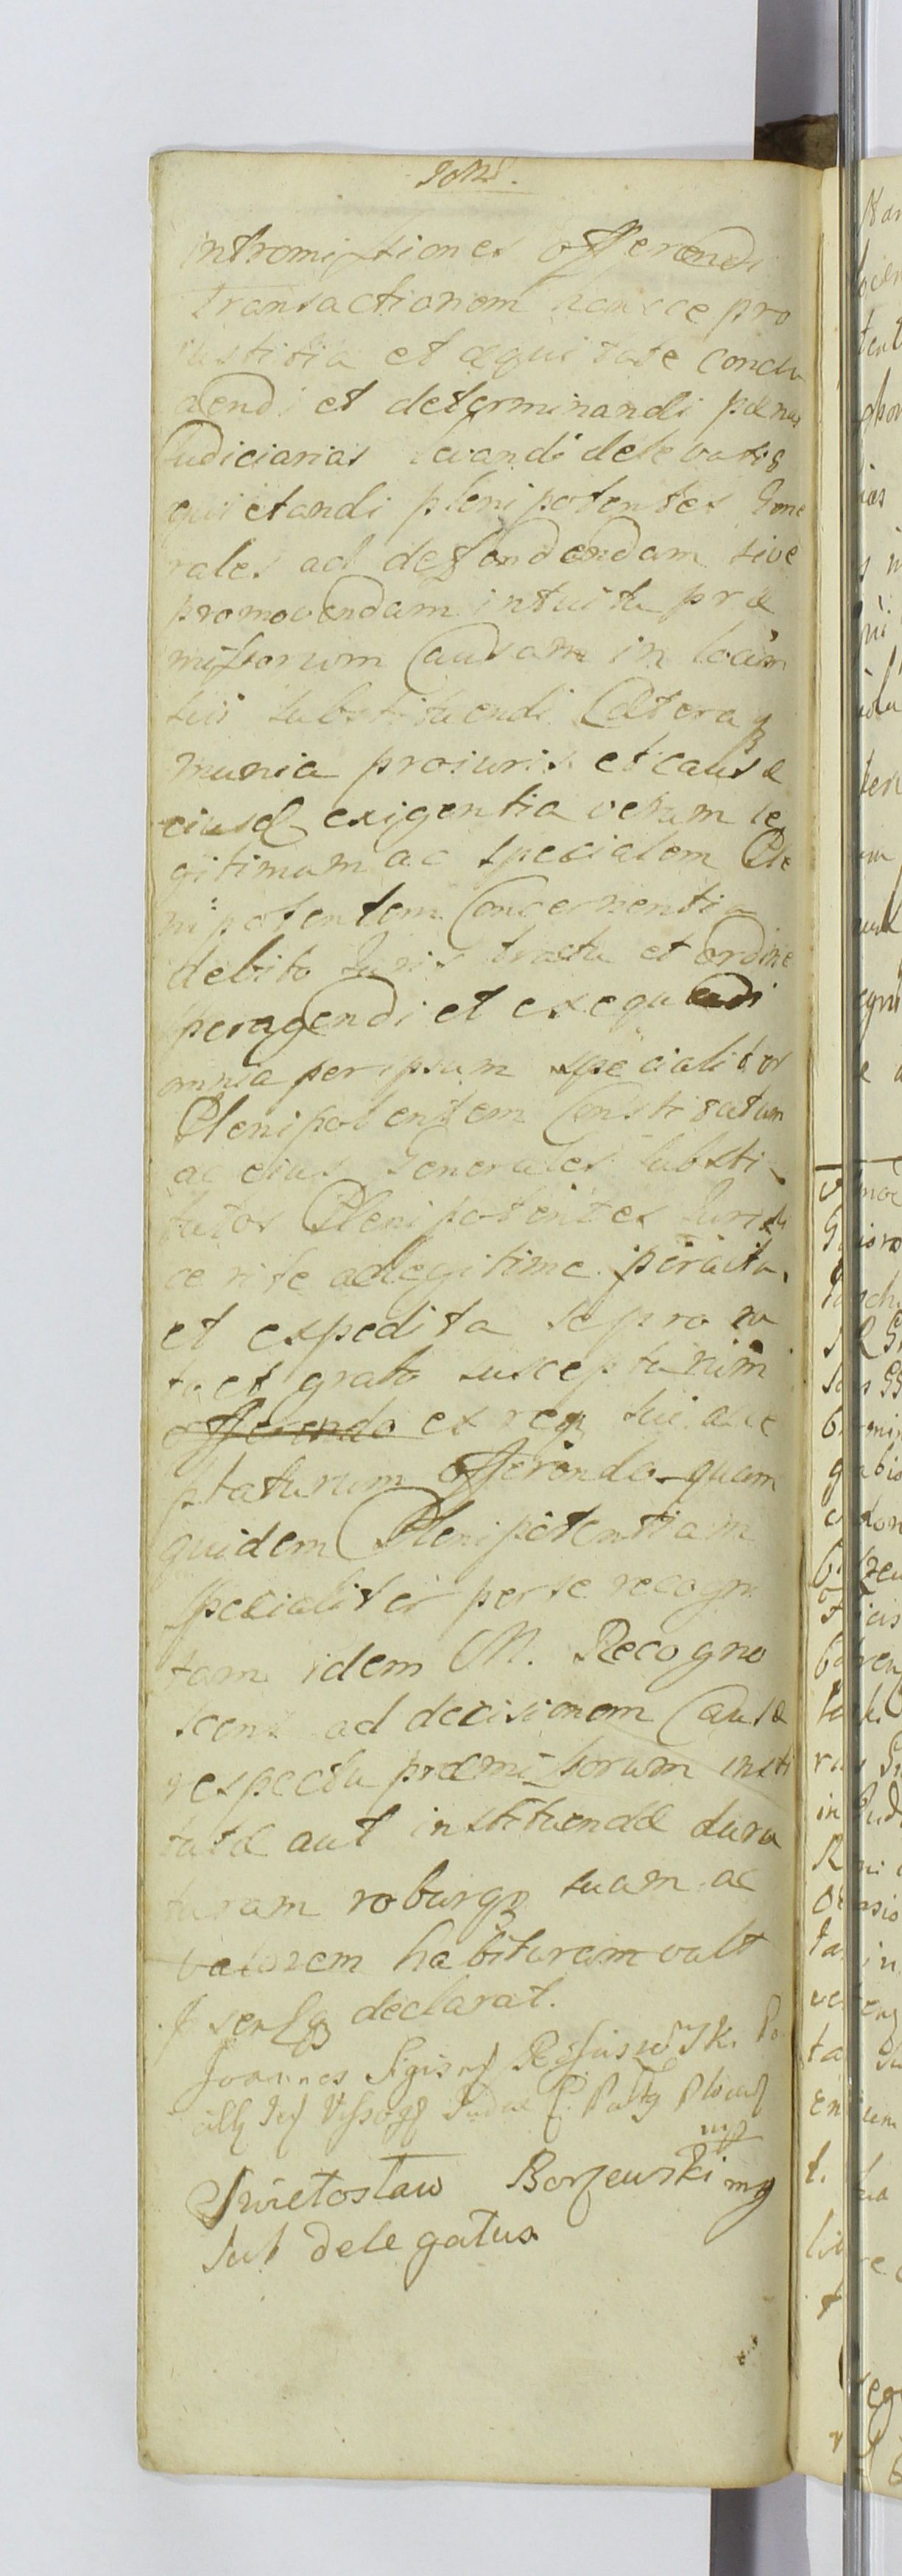 intromissiones offerendi
transactionem hancce pro
iustitia et æquitate conclu
dendi et determinandi pænas
Iudiciarias levandi de levatis
quietandi plenipotentes Gene
rales ad deffendendam sive
promovendam intuitu præ
missorum Causam in locum
sui substituendi Cæteraq
munia pro iuris et causæ
eiusd exigentia verum le
gitimum ac specialem Ple
nipotentem Concernentia
debito Iuris tractu et ordine
peragendi et exequendi
omnia per ipsum specialiter
Plenipotentem Constitutum
ac eius Generales substi
tutos Plenipotentes Iuridi
ce rite ac legitime peracta
et expedita se pro ra
to et grato suscepturum
offerendo ex req sui acce
ptaturum offerendo quam
quidem Plenipotentiam
specialiter per se recogni
tam idem M. Recogno
scens ad decisionem Causæ
respectu præmissorum insti
tutæ aut instituendæ dura
turam roburq suam ac
valorem habituram vult
declarat.
Joannes
Swietosław Borzewski mp
Sub delegatus